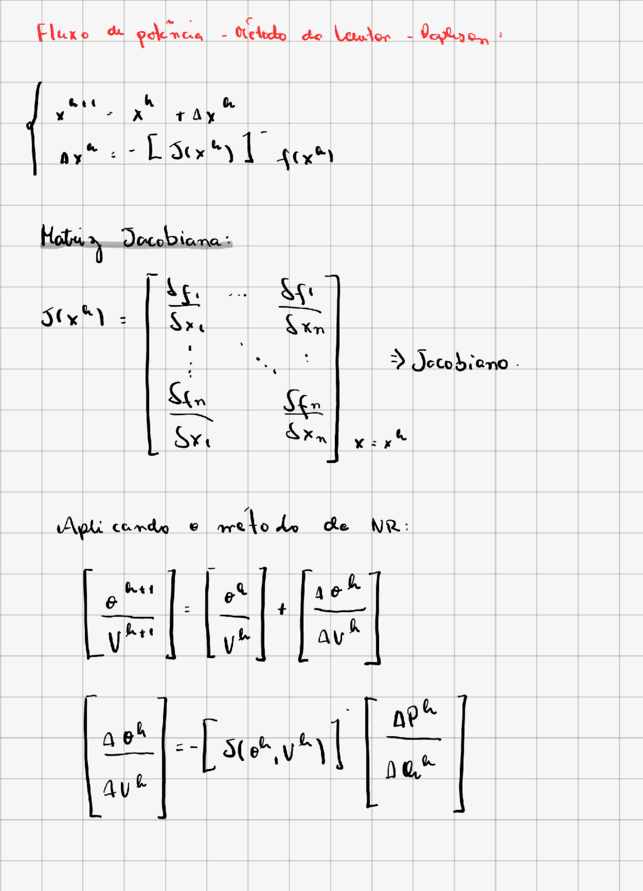 Fluxo de potência - Método de Newton - Raphson:
x^{k+1} = x^k + Δx^k
Δx^k = - [J(x^k)]^- f(x^k)
Matriz Jacobiana:
J(x^k) = [δf1/δx1 ... δf1/δxn ⋮ ⋱ ⋮ δfn/δx1 δfn/δxn] x = x^k ⇒ Jacobiano.
Aplicando o método de NR:
[θ^{k+1} / V^{k+1}] = [θ^k / V^k] + [Δθ^k / ΔV^k]
[Δθ^k / ΔV^k] = - [J(θ^k, V^k)]^- [ΔP^k / ΔQ^k]